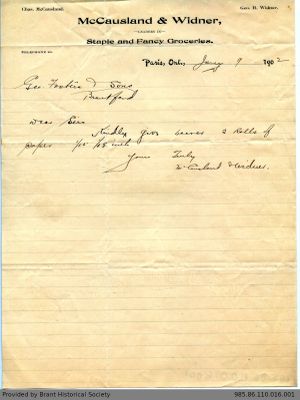 Chas. McCausland.
Geo. H. Widner.
McCausland & Widner,
DEALERS IN
Staple and Fancy Groceries.
TELEPHONE
Paris, Ont., Jany 9 1902
Geo & Sons
Brantford
Dear Sirs
Kindly give 2 Rolls of
paper inch
Yours Truly
McCausland & Widner
Provided by Brant Historical Society
985.86.110.016.001